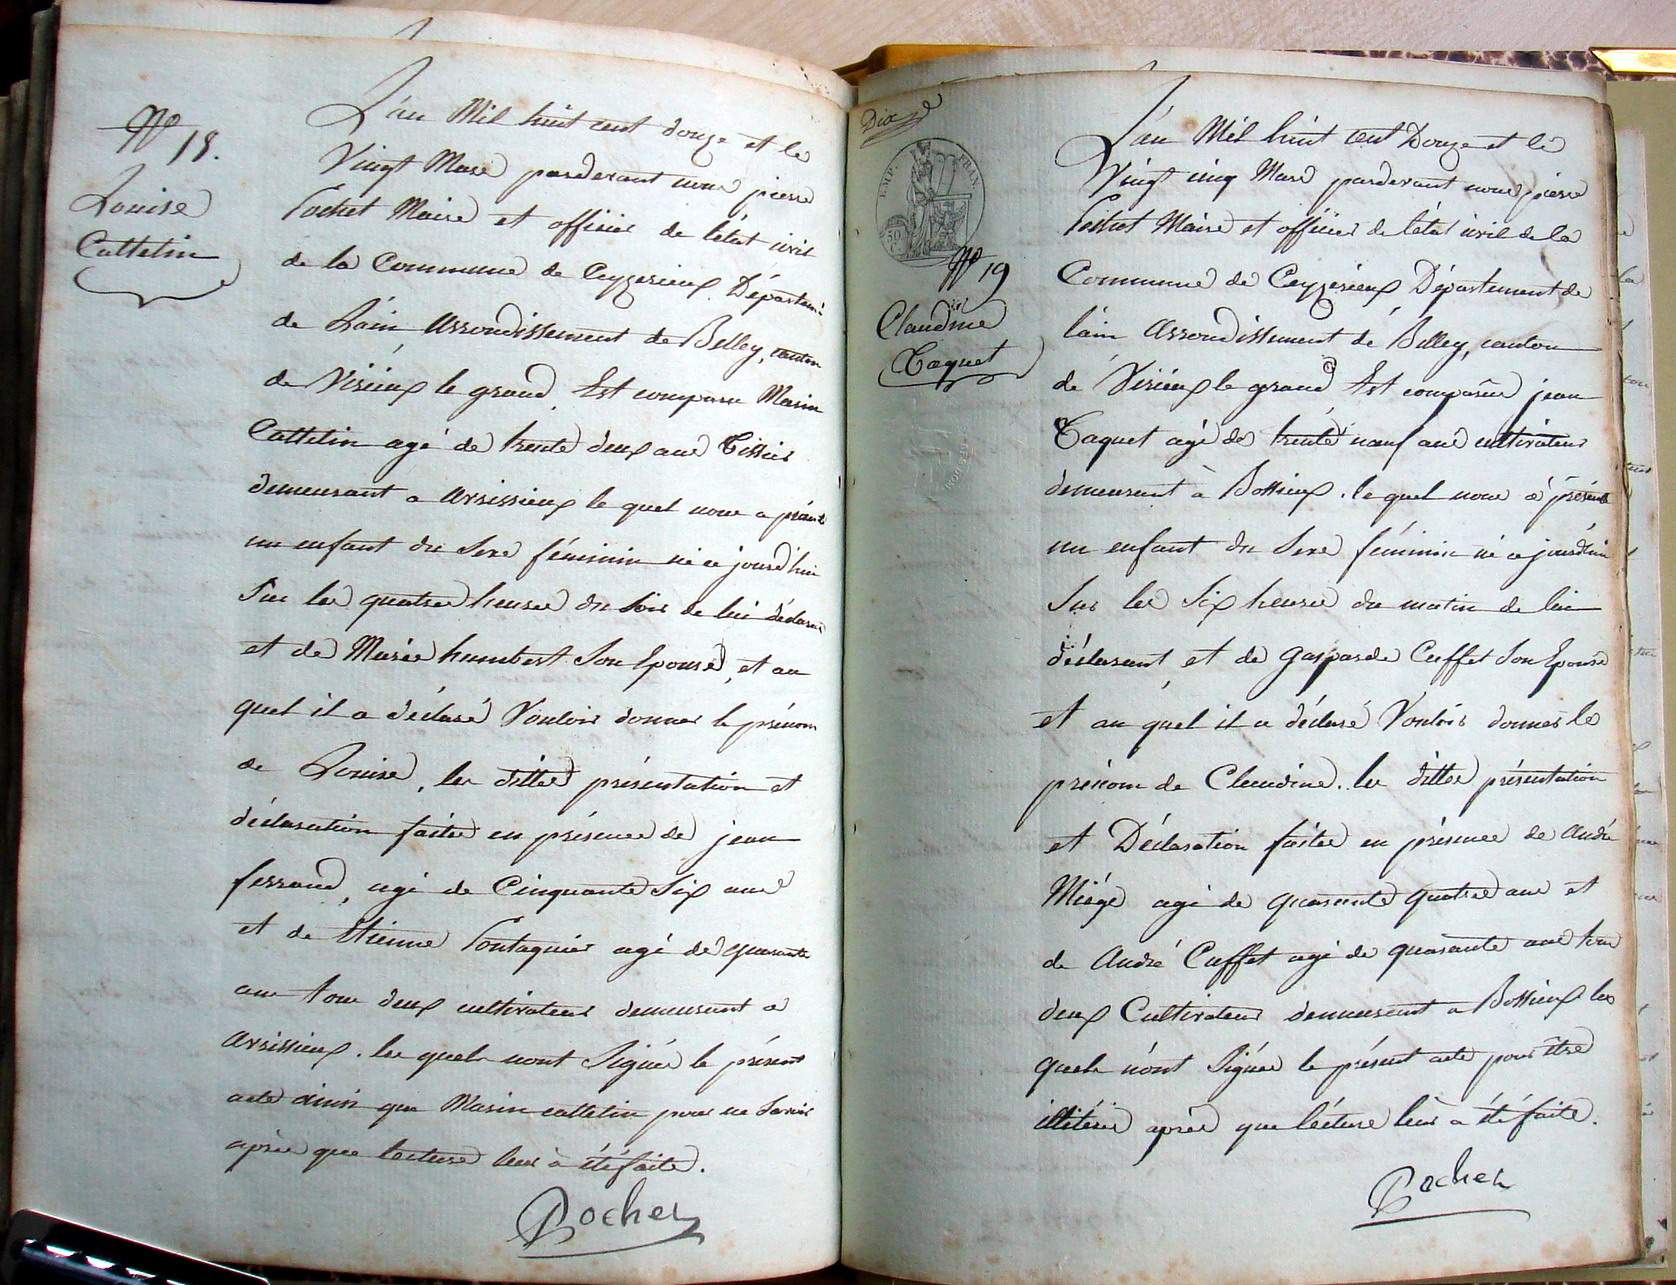 N° 18.
Louise
Cattelin
L'an Mil huit cent douze et le
Vingt Mars pardevant nous pierre
Pochet Maire et officier de l'état civil
de la Commune de Ceyzerieux Départem.t
de Lain Arrondissement de Belley, canton
de Virieux le grand, Est comparu Marin
Cattelin agé de trente deux ans Tissier
demeurant a Avrissieux le quel nous a présenté
un enfant du Sexe féminin né ce jourd'hui
Sur les quatre heures du soir de lui déclarant
et de Marie humbert Son Epouse, et au
quel il a déclaré Vouloir donner le prénom
de Louise, les dittes présentation et
déclaration faites en présence de jean
ferrand, agé de Cinquante Six ans
et de Etienne agé de quarante
ans tous deux cultivateurs demeurant a
Avrissieux. les quels n'ont Signés le présent
acte ainsi que Marin cattelin pour ne Savoir
après que lecture leur à été faite.
Pocher
Dix
EMP. FRAN.
N° 19
Claudine
Taquet
L'an Mil huit cent Douze et le
Vingt cinq Mars pardevant nous pierre
Pochet Maire et officier de l'état civil de la
Commune de Ceyzerieux Département de
l'ain Arrondissement de Belley, canton
de Virieux le grand Est comparu jean
Taquet agé de trente neuf ans cultivateur
demeurant à Bossieux. le quel nous a présenté
un enfant du Sexe féminin né ce jourd'hui
Sur les Six heures du matin de lui
déclarant et de Gasparde Cuffet Son Epouse
et au quel il a déclaré Vouloir donner le
prénom de Claudine. les dittes présentation
et Déclaration faites en présence de André
Miège agé de quarante quatre ans et
de André Cuffet agé de quarante ans tous
deux Cultivateurs demeurant a Bossieux les
quels n'ont Signés le présent acte pour être
illitérés après que lécture leur a été faite.
Pocher